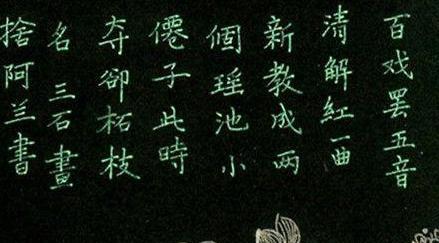 百戏罢五音
清解紅一曲
新教成两
個瑶池小
僊子此時
夺卻柘枝
名 三石畫
捨阿兰書